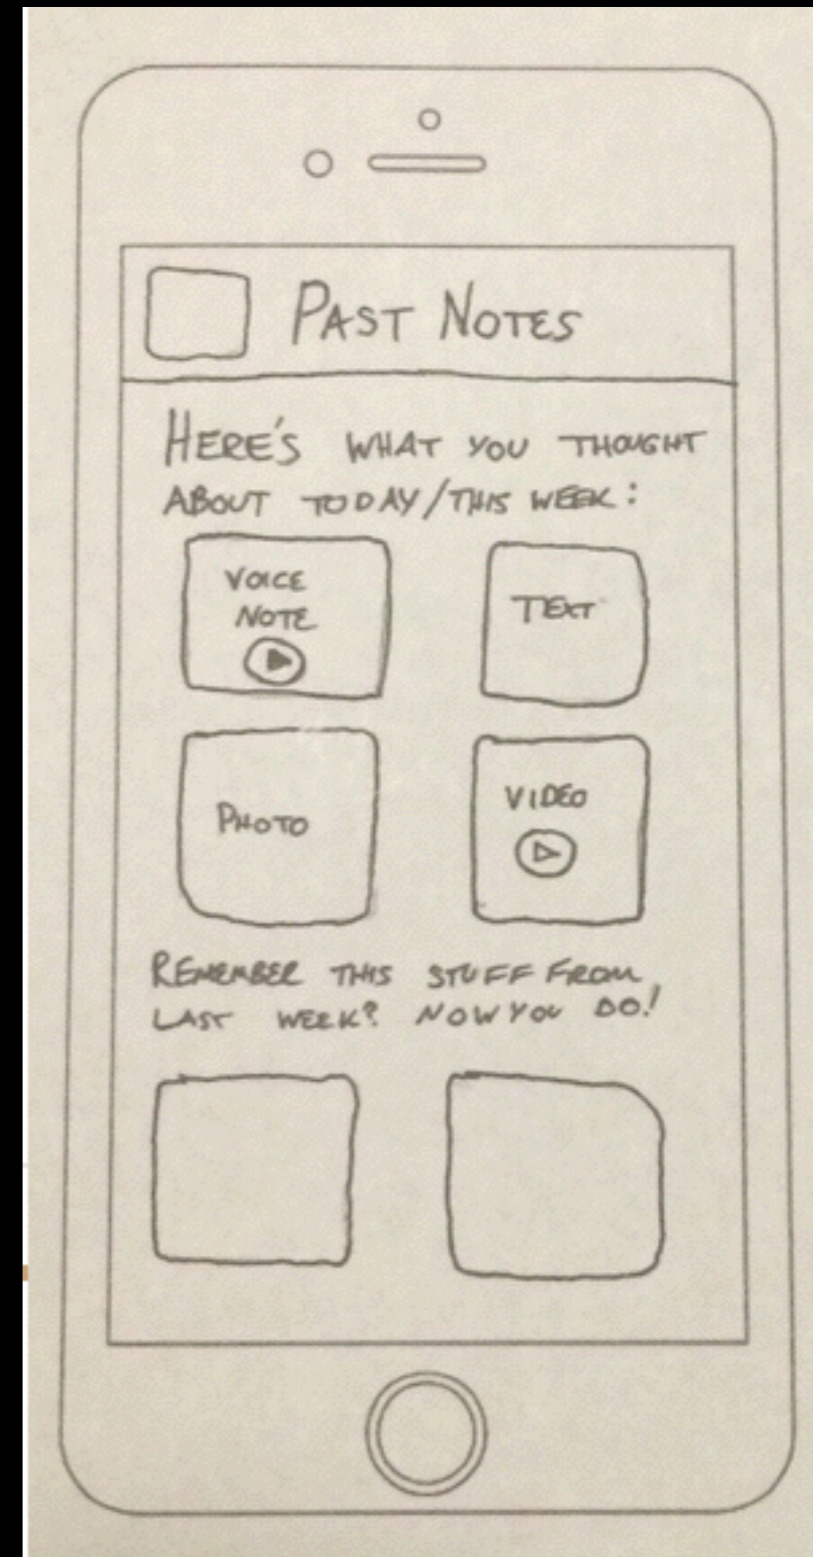 PAST NOTES
HERE'S WHAT YOU THOUGHT
ABOUT TODAY/THIS WEEK:
VOICE
NOTE
TEXT
PHOTO
VIDEO
REMEMBER THIS STUFF FROM
LAST WEEK? NOW YOU DO!